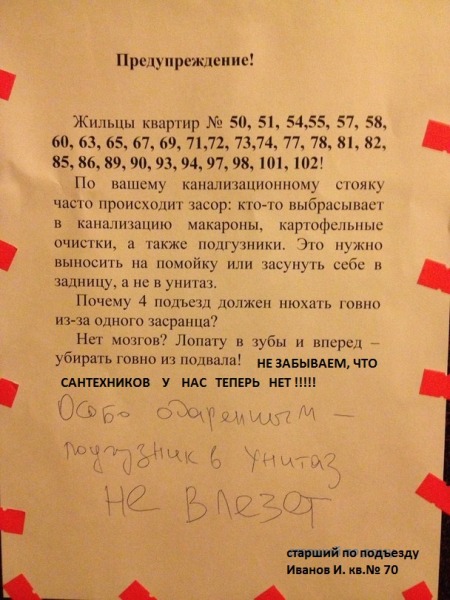 Предупреждение!
Жильцы квартир № 50, 51, 54,55, 57, 58,
60, 63, 65, 67, 69, 71,72, 73,74, 77, 78, 81, 82,
85, 86, 89, 90, 93, 94, 97, 98, 101, 102!
По вашему канализационному стояку
часто происходит засор: кто-то выбрасывает
в канализацию макароны, картофельные
очистки, а также подгузники. Это нужно
выносить на помойку или засунуть себе в
задницу, а не в унитаз.
Почему 4 подъезд должен нюхать говно
из-за одного засранца?
Нет мозгов? Лопату в зубы и вперед –
убирать говно из подвала! НЕ ЗАБЫВАЕМ, ЧТО
САНТЕХНИКОВ У НАС ТЕПЕРЬ НЕТ !!!!!
Особо одаренным –
подгузник в унитаз
не влезет
старший по подъезду
Иванов И. кв.№ 70